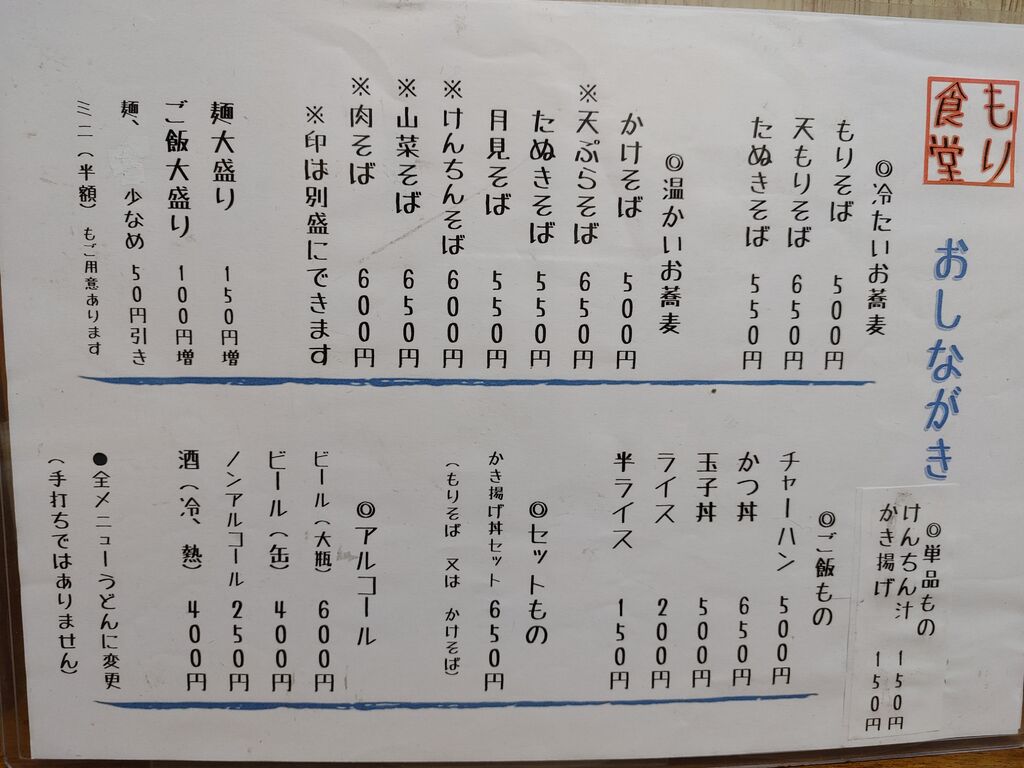 もり食堂
おしながき
◎冷たいお蕎麦
もりそば 500円
天もりそば 650円
たぬきそば 550円
◎温かいお蕎麦
かけそば 500円
※天ぷらそば 650円
たぬきそば 550円
月見そば 550円
※けんちんそば 600円
※山菜そば 650円
※肉そば 600円
※印は別盛にできます
麺大盛り 150円増
ご飯大盛り 100円増
麺、 少なめ 50円引き
ミニ(半額) もご用意あります
◎単品もの
けんちん汁 150円
かき揚げ 150円
◎ご飯もの
チャーハン 500円
かつ丼 650円
玉子丼 500円
ライス 200円
半ライス 150円
◎セットもの
かき揚げ丼セット 650円
(もりそば 又は かけそば)
◎アルコール
ビール(大瓶) 600円
ビール(缶) 400円
ノンアルコール 250円
酒(冷、熱) 400円
●全メニューうどんに変更
(手打ちではありません)